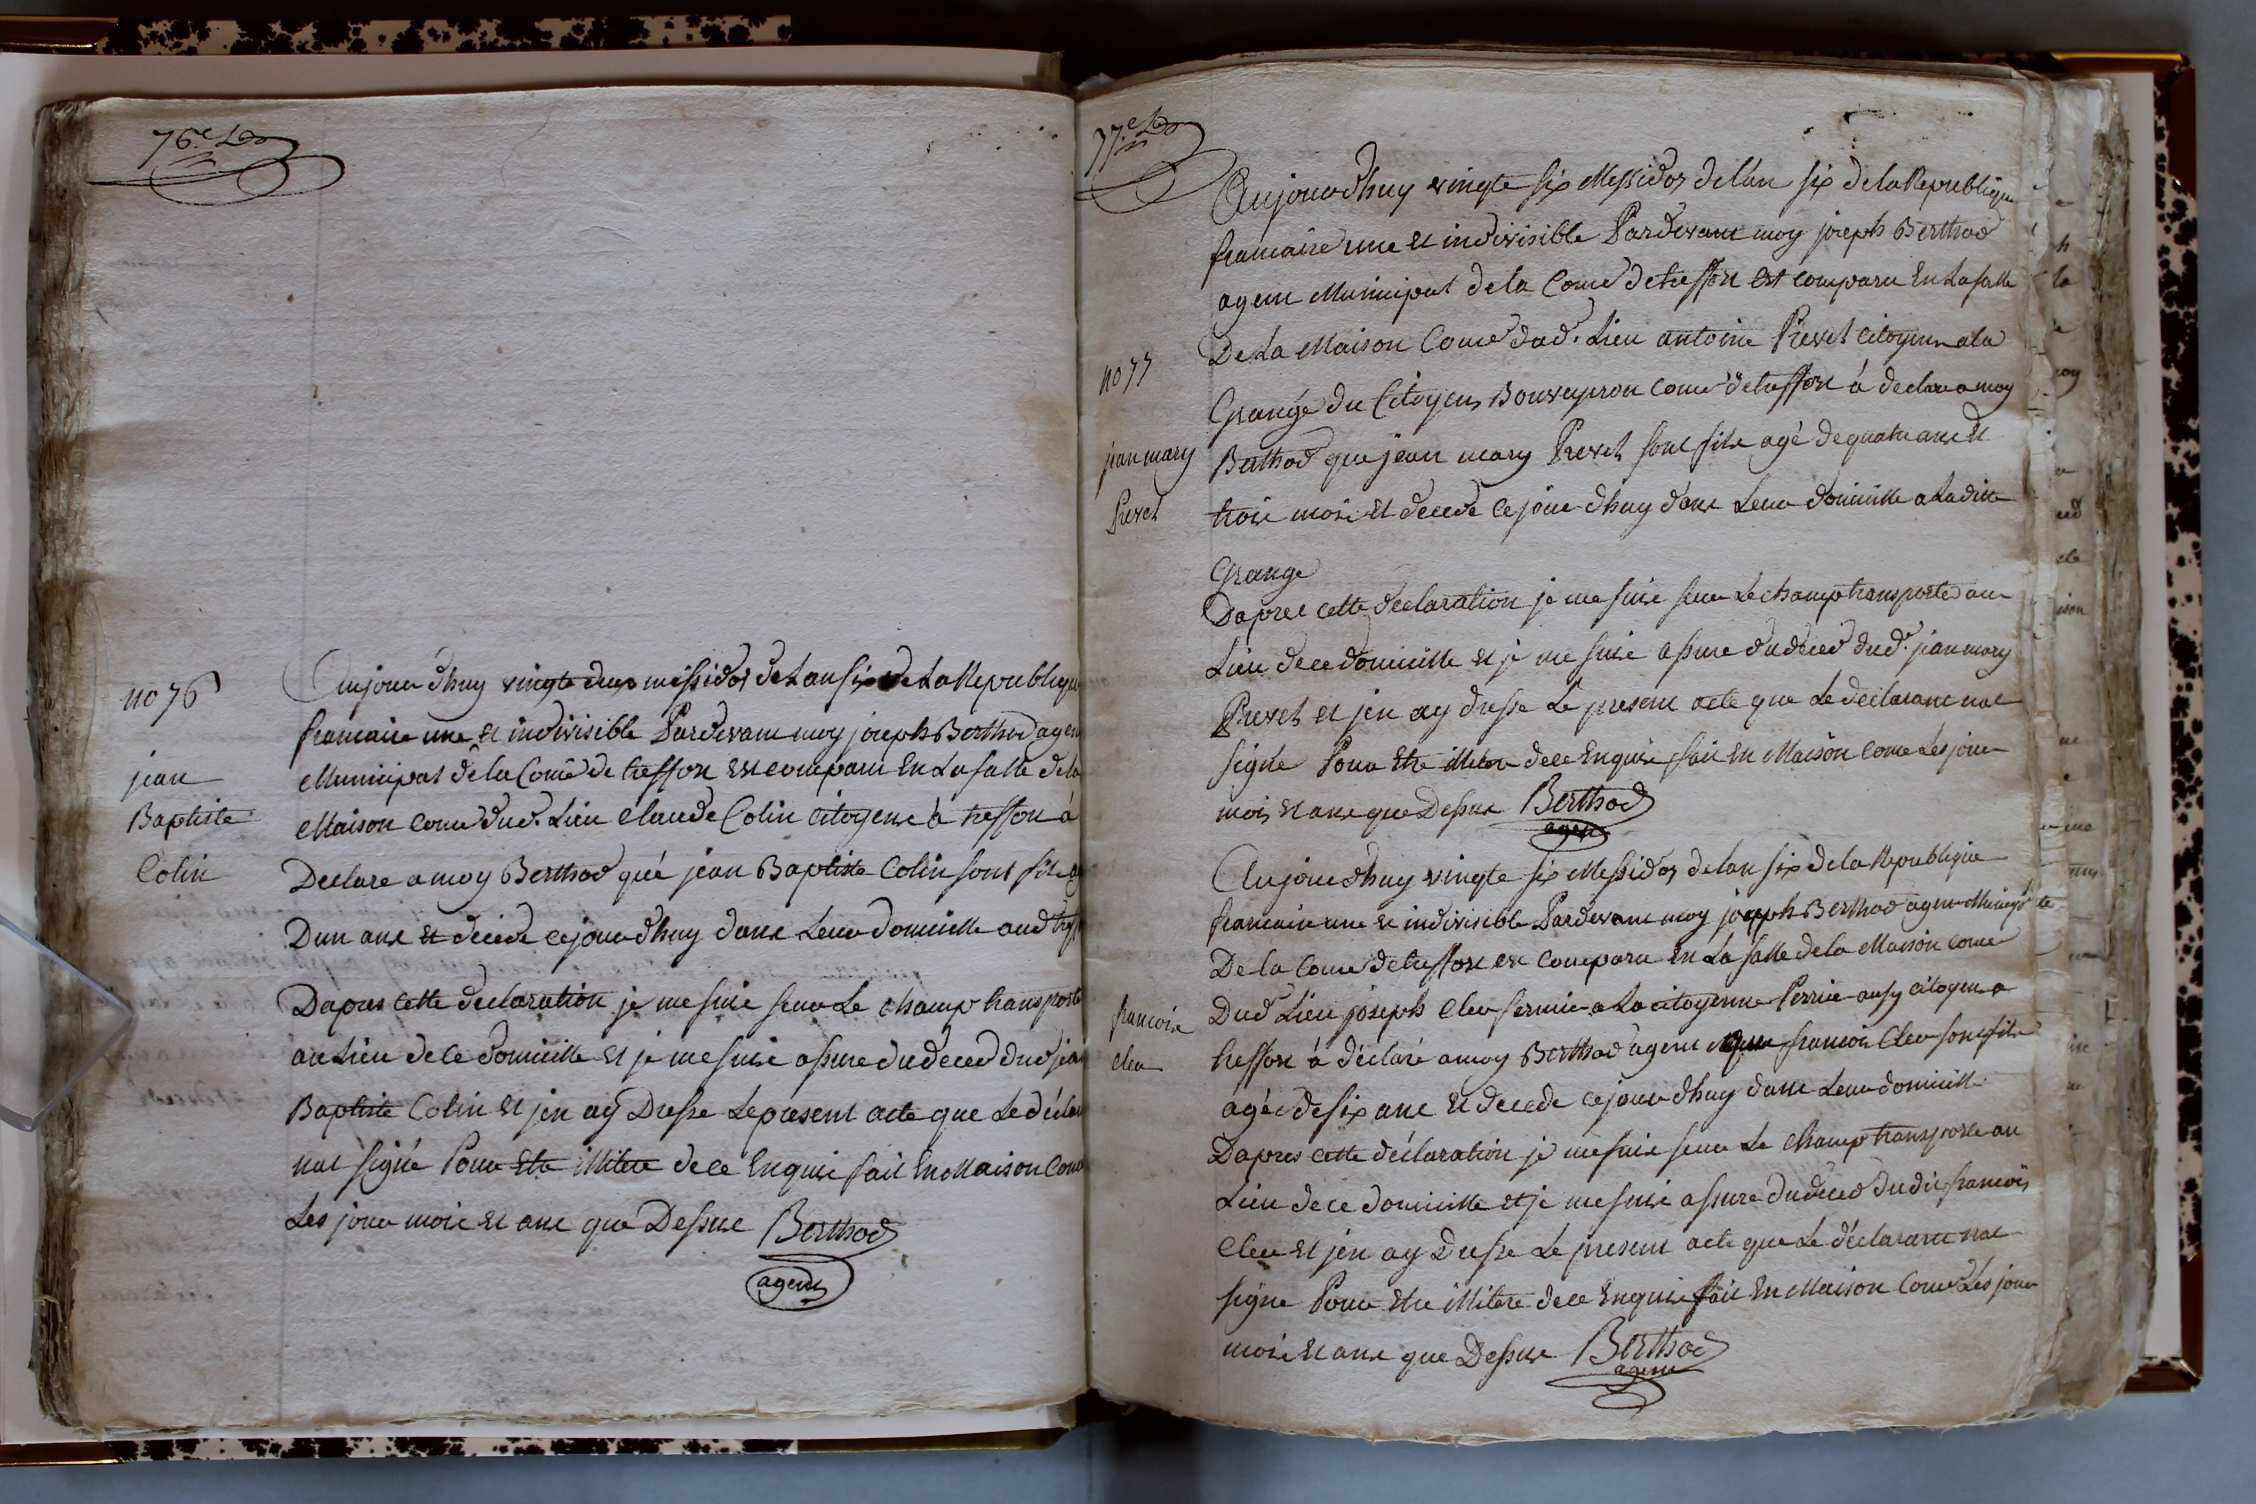 76.e
no 76
jean
Baptiste
Colin
Aujour dhuy vingte deux messidor de Lan six de La Republique
francaise une et indivisible Pardevant moy joseph Berthod agen
Municipal de la Come de treffon est comparu En La salle de la
Maison come dud. Lieu claude Colin citoyens à treffon à
Declare a moy Berthod qué jean Baptiste Colin sont fils ag
Dun ans et décédé ce jour dhuy dans Leur domicille aud
Dapres cette declaration je me suis sur Le champ transporte
au Lieu de ce domicille et je me suis assure du deced dud jean
Baptiste Colin et jen aÿ Dresse Le présent acte que Le déclar
nat signé Pour Etre illitere de ce Enquis fait En Maison Come
Les jour mois et ans que Dessus Berthod
agent
77.e
Aujourdhuy vingte six Messidor de lan six de la Republique
francaise une et indivisible Pardevant moy joseph Berthod
agent Municipal de la Come de treffon est comparu En La salle
De La Maison Come dud. Lieu antoine Prevet citoyen a la
no 77
Grange du Citoyens Bouveyron come de treffon à declare a moy
jean mary
Berthod que jean mary Prevet sont fils agé de quatre ans et
Prevet
trois mois et decede ce jour dhuy dans Leur domicille a La ditte
Grange
Dapres cette declaration je me suis sur Le champ transporte au
Lieu de ce domicille et je me suis assure du deced dud. jean mary
Prevet et jen ay dresse Le present acte que Le déclarant nat
signe Pour Etre illitere de ce Enquis fait En Maison Come Les jour
mois et ans que Dessus Berthod
agent
Aujourdhuy vingte six Messidor de lan six de la Republique
francaise une et indivisible Pardevant moy joseph Berthod agent
De la Come de treffon est comparu En La salle de la Maison come
Dud Lieu joseph Cleu fermier a La citoyenne Perrier ausy citoyen a
francois
treffon à déclaré a moy Berthod agent que francois Cleu sont fils
Cleu
agé de six ans et decede ce jour dhuy dans Leur domicille
Dapres cette déclaration je me suis sur Le champ transporte au
Lieu de ce domicille et je me suis assure du deced du dit francois
Cleu et jen ay Dresse Le present acte que Le déclarant nat
signe Pour Etre illitere de ce Enquis fait En Maison Come Les jour
mois et ans que Dessus Berthod
agent